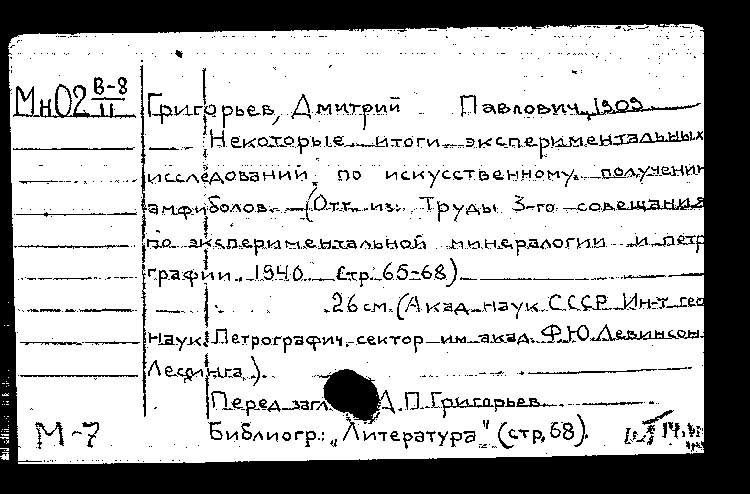 МнО2 В-8/II Григорьев, Дмитрий Павлович, 1909
Некоторые итоги экспериментальных
исследований по искусственному получени
амфиболов. (Отт. из: Труды 3-го совещания
по экспериментальной минералогии и петр
графии. 1940. Стр. 65-68)
26 см. (Акад. наук СССР Ин-т гео
наук. Петрографич. сектор им. акад. Ф.Ю. Левинсон
Лесинга).
Перед загл. Д.П. Григорьев.
М-7 Библиогр.: „Литература" (стр. 68).